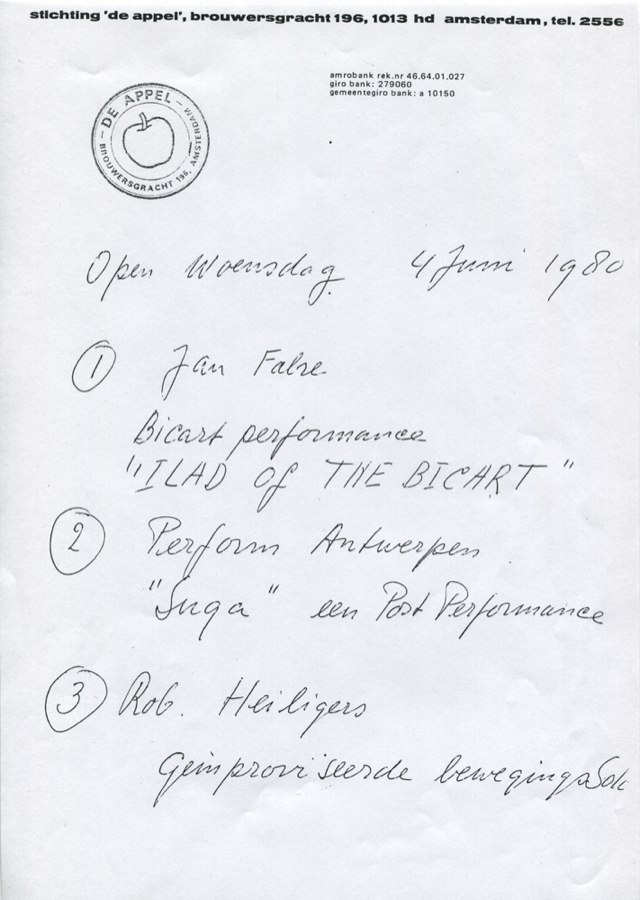 stichting 'de appel', brouwersgracht 196, 1013 hd amsterdam, tel. 2556
amrobank rek.nr 46.64.01.027
giro bank: 279060
gemeentegiro bank: a 10150
- DE APPEL -
BROUWERSGRACHT 196, AMSTERDAM
Open Woensdag 4 Juni 1980
1 Jan Fabre
Bicart performance
"ILAD of THE BICART"
2 Perform Antwerpen
"Suga" een Post Performance
3 Rob. Heiligers
Geimproviseerde bewegingsSolo